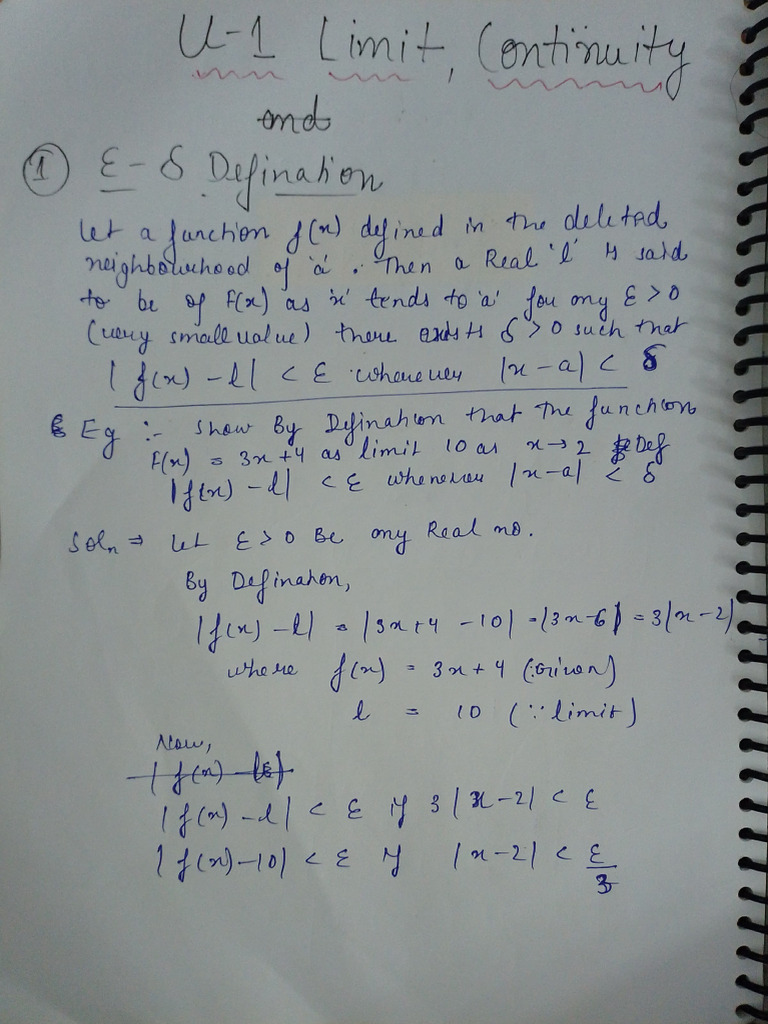 U-1 Limit, Continuity
and
① ε-δ Defination
Let a function f(x) defined in the deleted
neighbourhood of 'a'. Then a Real 'l' is said
to be of F(x) as 'x' tends to 'a' for any ε > 0
(very small value) there exists δ > 0 such that
| f(x) - l | < ε whenever |x-a| < δ
Eg :- Show By Defination that the function
F(x) = 3x+4 as limit 10 as x → 2 Def
|f(x) - l| < ε whenever |x-a| < δ
Soln ⇒ Let ε > 0 Be any Real no.
By Defination,
|f(x) - l| = |3x+4 - 10| = |3x-6| = 3|x-2|
where f(x) = 3x+4 (Given)
l = 10 (∵ limit)
Now,
| f(x) - 
| f(x) - l | < ε if 3 |x-2| < ε
| f(x)-10| < ε if |x-2| < ε/3